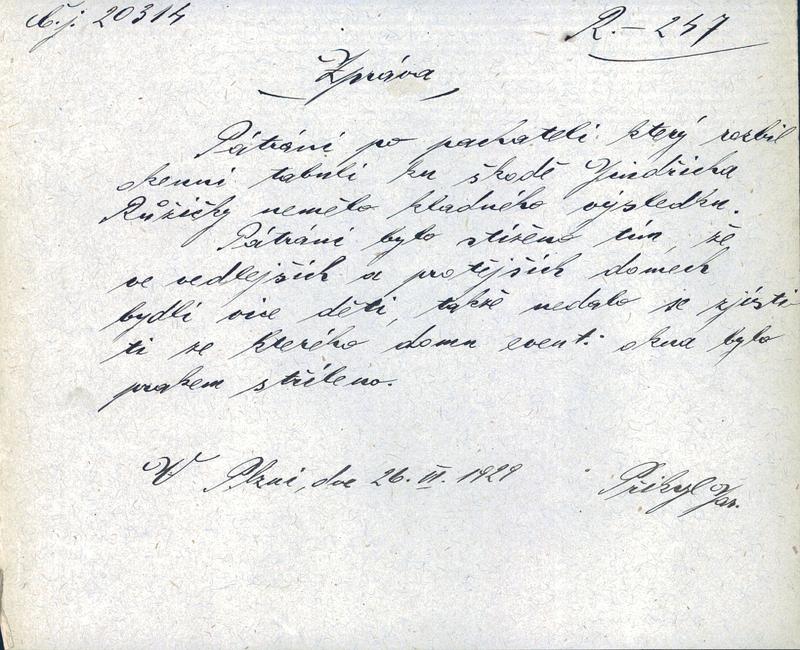 Č. j. 20314
R. - 247
Zpráva
Pátrání po pachateli který rozbil
okenní tabuli ku škodě Jindřicha
Růžičky nemělo kladného výsledku.
Pátrání bylo stíženo tím, že
ve vedlejších a protějších domech
bydlí více dětí, takže nedalo se zjisti-
ti ze kterého domu event. okna bylo
prakem stříleno.
V Plzni, dne 26. VI. 1929
Přikryl